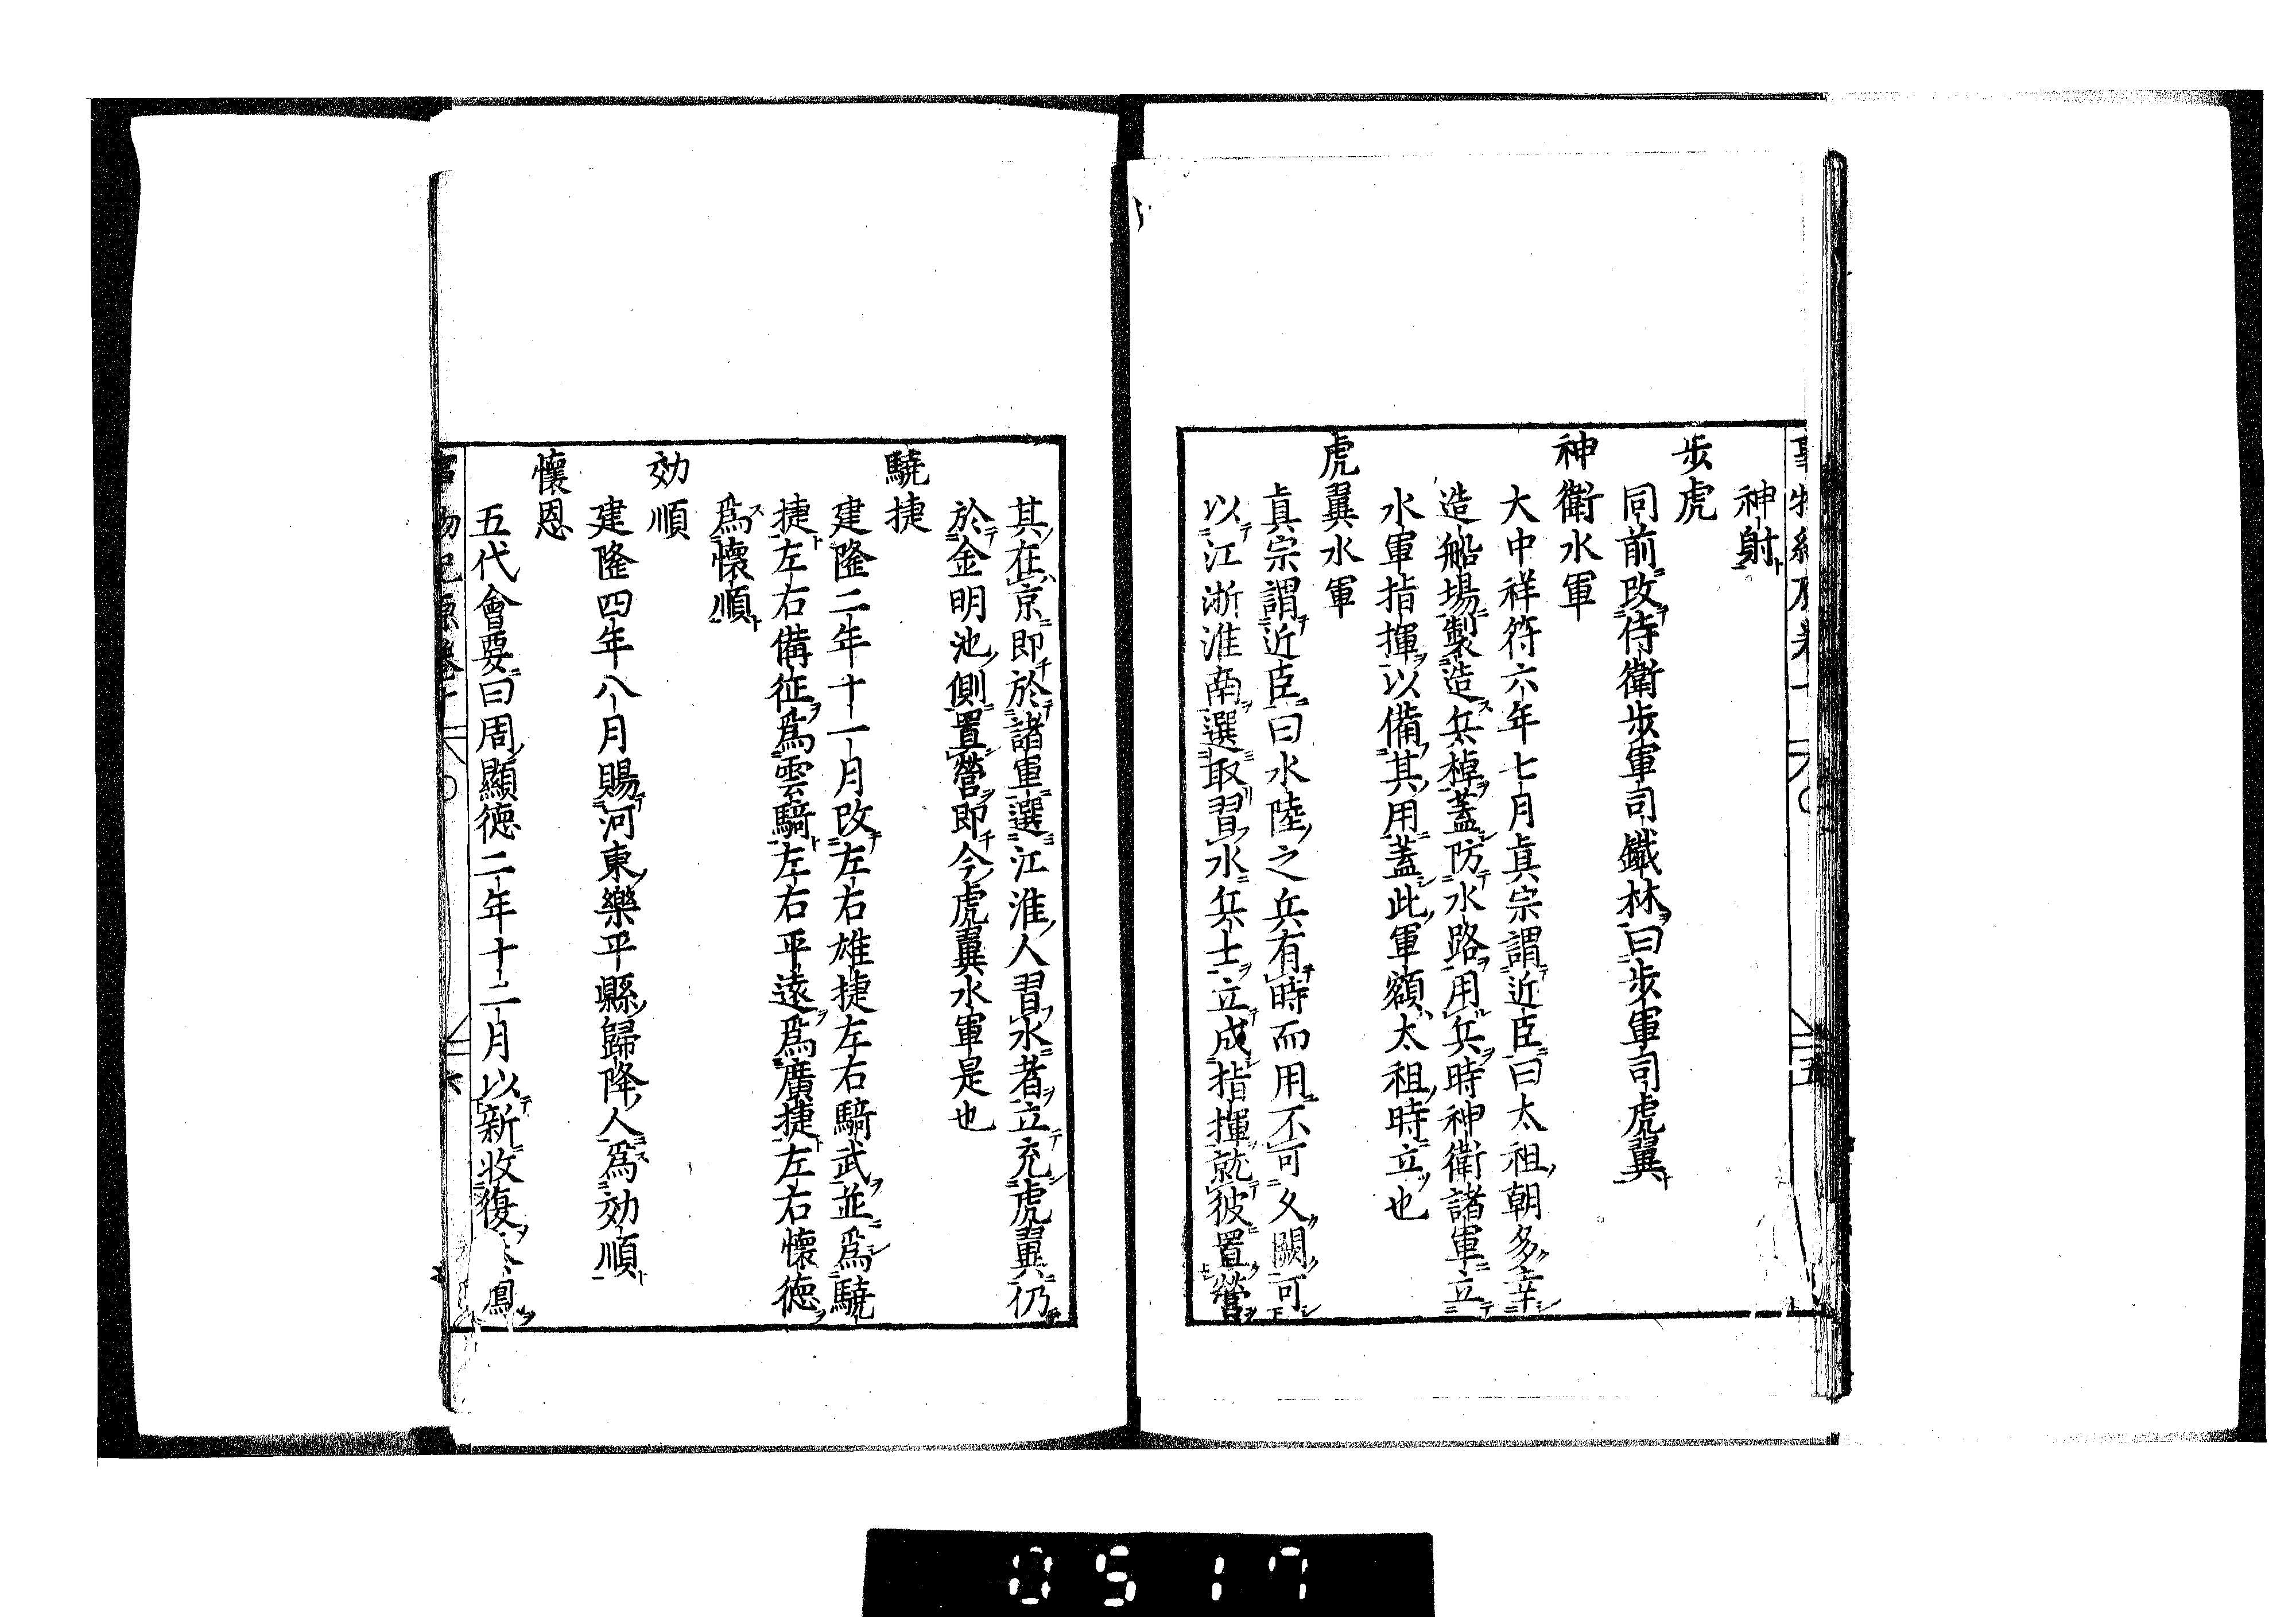 神射
步虎
同前改侍衛步軍司鐵林曰步軍司虎翼
神衛水軍
大中祥符六年七月眞宗謂近臣曰太祖朝多幸
造船場製造兵棹蓋防水路用兵時神衛諸軍立
水軍指揮以備其用蓋此軍額太祖時立也
虎翼水軍
眞宗謂近臣曰水陸之兵有時而用不可久闕可
以江浙淮南選取習水兵士立成指揮就彼置營
其在京即於諸軍選江淮人習水者立充虎翼仍
於金明池側置營即今虎翼水軍是也
驍捷
建隆二年十一月改左右雄捷左右驍武並爲驍
捷左右備征爲雲騎左右平遠爲廣捷左右懷德
爲懷順
効順
建隆四年八月賜河東樂平縣歸降人爲効順
懷恩
五代會要曰周顯德二年十二月以新收復